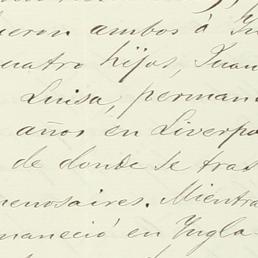 ueron ambos á In
cuatro hijos, Juan
Luisa, perman
años en Liverpo
de donde se tras
uenosaires. Mientra
maneció en Ingla-